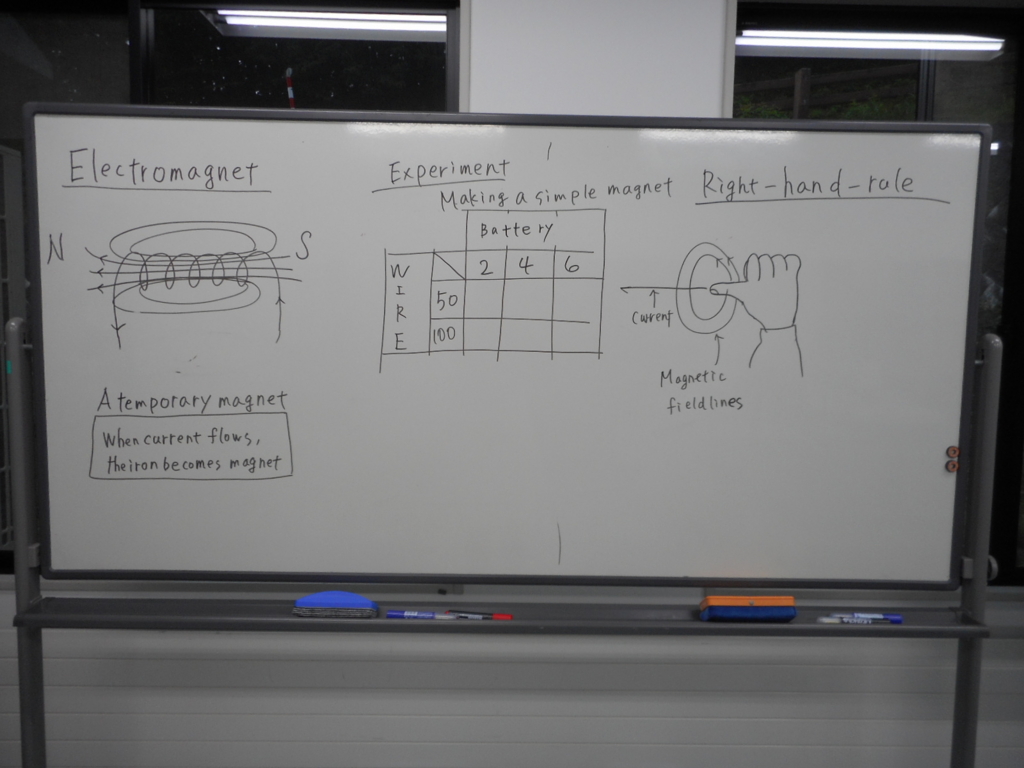 Electromagnet
N
S
A temporary magnet
When current flows,
the iron becomes magnet
Experiment
Making a simple magnet
Battery
WIRE
2 4 6
50
100
Right-hand-rule
Current
Magnetic
field lines